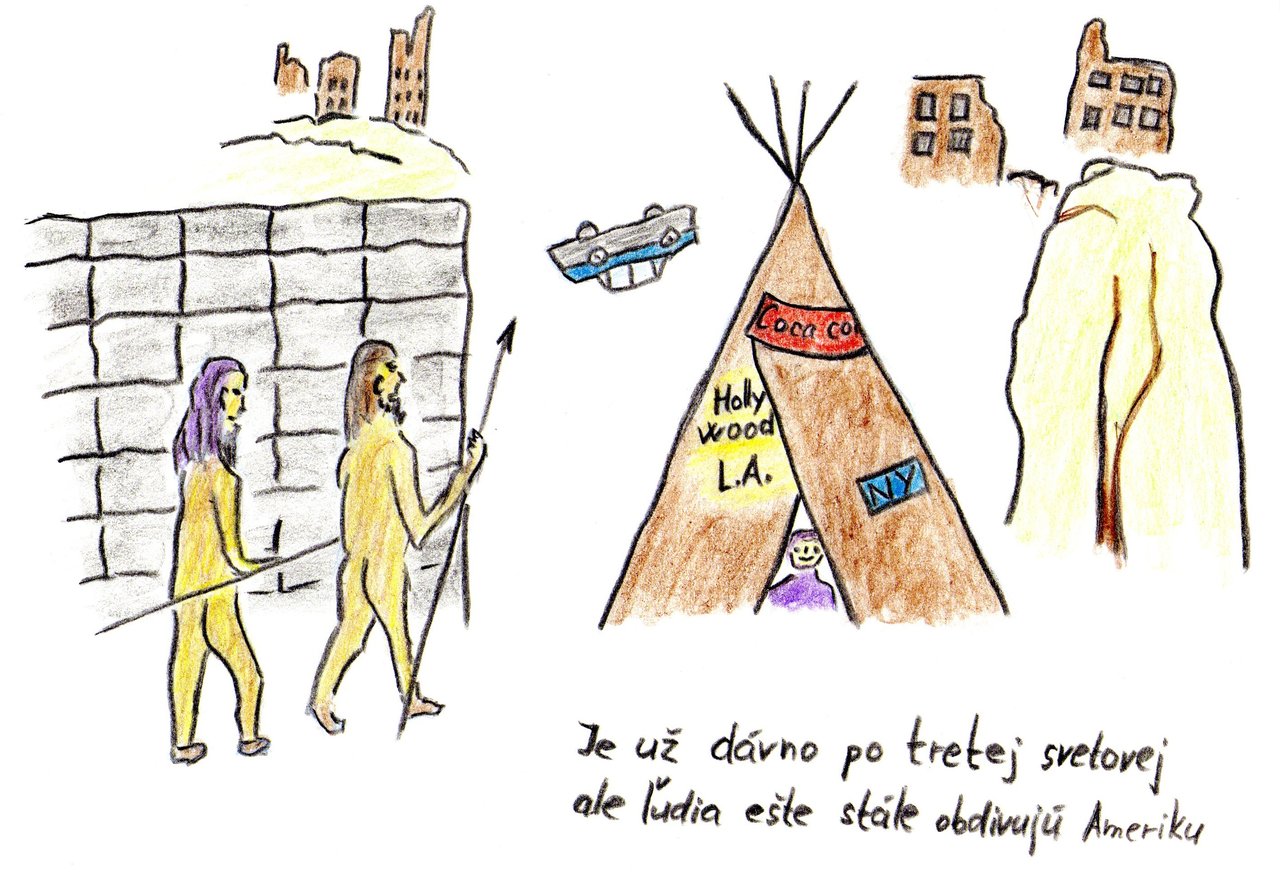 Coca co
Holly
wood
L.A.
NY
Je už dávno po tretej svetovej
ale ľudia ešte stále obdivujú Ameriku